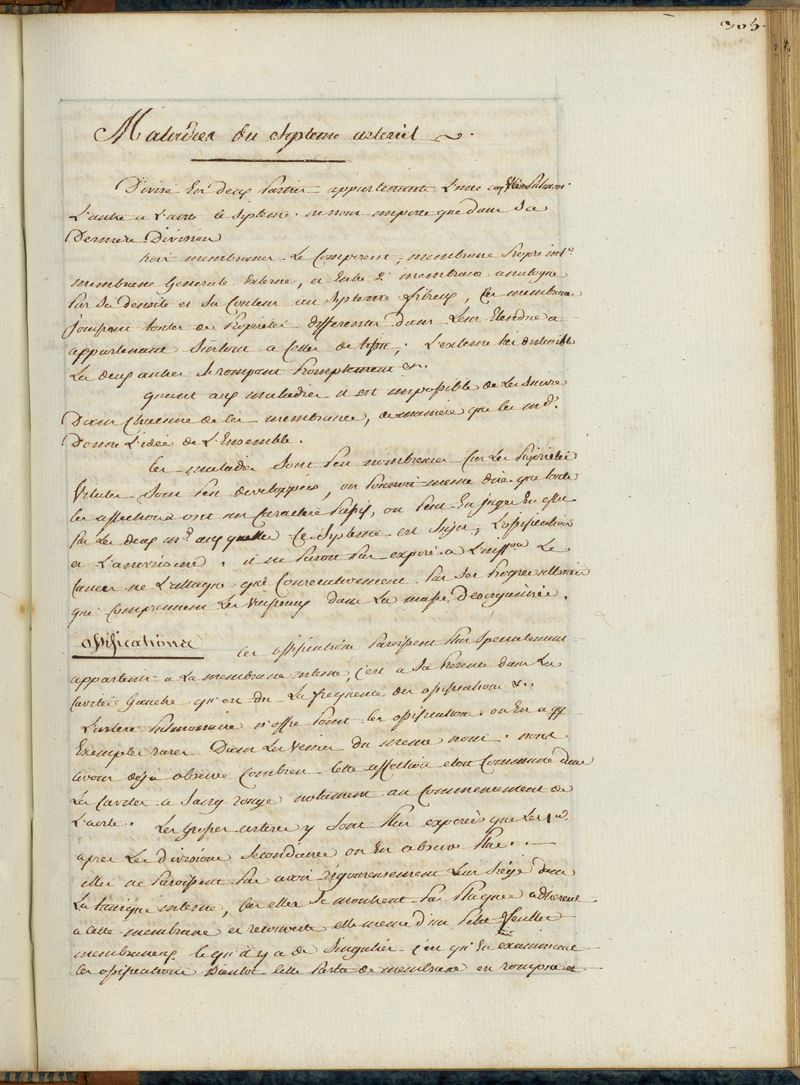 305.
Maladies du système artériel
Divisé en deux parties appartenante l'une au
L'autre a L'aorte le système. ne nous importe que dans sa
Derniere Division
trois membranes le composent, membrane propre int.e
membrane Generale Externe, et Entre 2 membrane analogue
par sa densité et sa Couleur au système fibreux, Ces membranes
jouissent toutes de propriétés differentes dans leur Etendue
appartenant surtout a Celles de tissu; L'externe
Les deux autres se rompent promptement &.
quant aux maladies il est impossible de les suivre
Dans Chacune de ces membranes, de manière que les m.des
Donne L'idée de L'Ensemble.
Ces maladies sont peu nombreuses Car Les propriétés
Vitales sont peu developpées, on pourroit meme dire que toutes
les affections ont un Caractère passif, on peut En juger En effet
par Les deux m.es auxquelles Ce système est sujet, L'ossification
et L'anevrisme. il ne paroit pas exposé a Le
Cancer ne L'attaque que Consecutivement par ses progrès
qui Comprennent Les Vaisseaux dans La masse Desorganisée.
Ossifications Ces ossifications paroissent plus specialement
appartenir a La membrane interne, C'est a sa presence dans Les
Cavités Gauches qu'est du La frequence des ossifications &.
L'artere Pulmonaire n'offre point les ossifications. on En a qq
Exemples rares Dans Les veines du meme nom. nous
avons deja observé Combien Cette affection etoit Commune dans
Les Cavités a sang rouge notament au Commencement de
L'aorte. Les grosses arteres y sont plus exposées que Les
après Les divisions secondaires on En observe plus.
elles ne paroissent pas avoir rigoureusement Leur siége dans
La tunique interne, Car elles se montrent par plaques adherentes
a Cette membrane et recouverte elle meme d'un petit feuillet
membraneux ce qu'il y a de singulier C'est qu'En examinant
Ces ossifications bientot Cette partie de membrane se rompre et